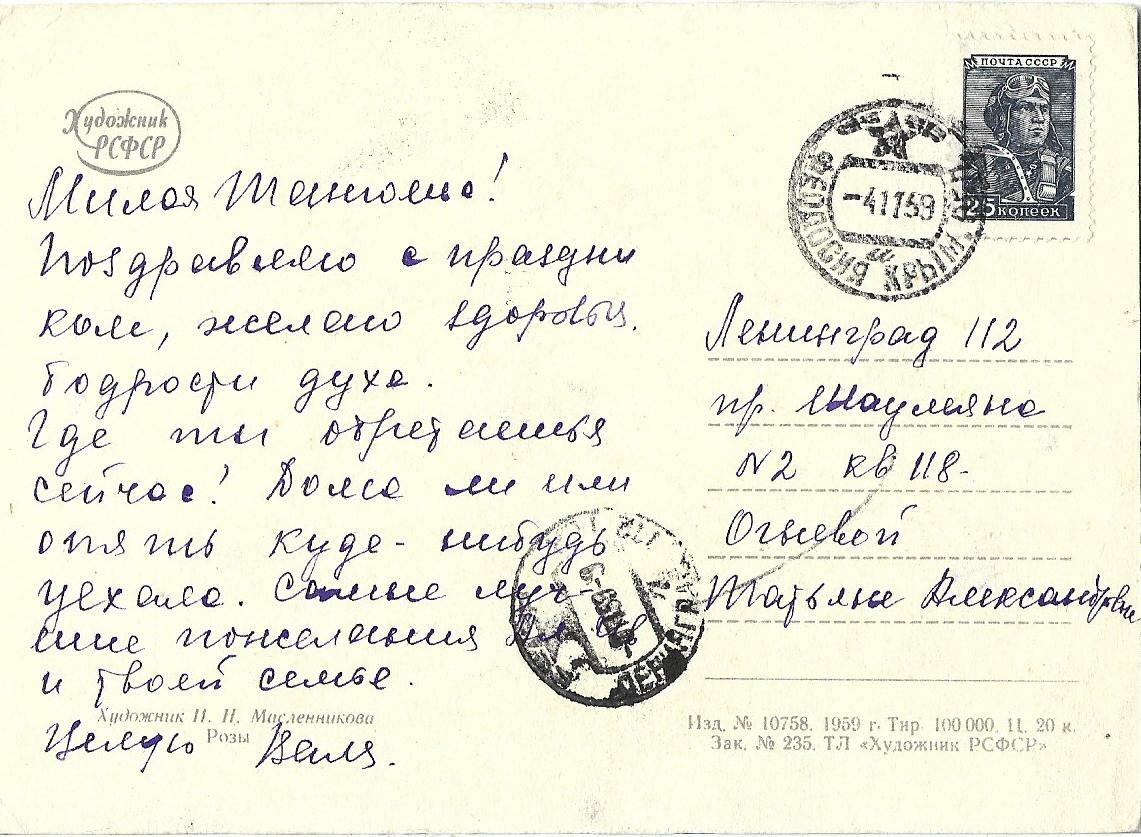 Художник
РСФСР
ПОЧТА СССР
25 копеек
ФЕОДОСИЯ КРЫМ. ОБЛ.
-41159
Милая Танюша!
Поздравляю с праздни
ком, желаю здоровья.
бодрости духа.
Где ты обретаешься
сейчас! Дома ли или
опять куде-нибудь
уехала. Самые луч-
шие пожелания
и твоей семье.
Целую Валя.
Ленинград 112
пр. Шаумяна
N2 кв 118-
Огневой
Татьяне Александровне
ЛЕНИНГРАД
Художник Н. Н. Масленникова
Розы
Изд. № 10758. 1959 г. Тир. 100 000. Ц. 20 к.
Зак. № 235. ТЛ «Художник РСФСР»